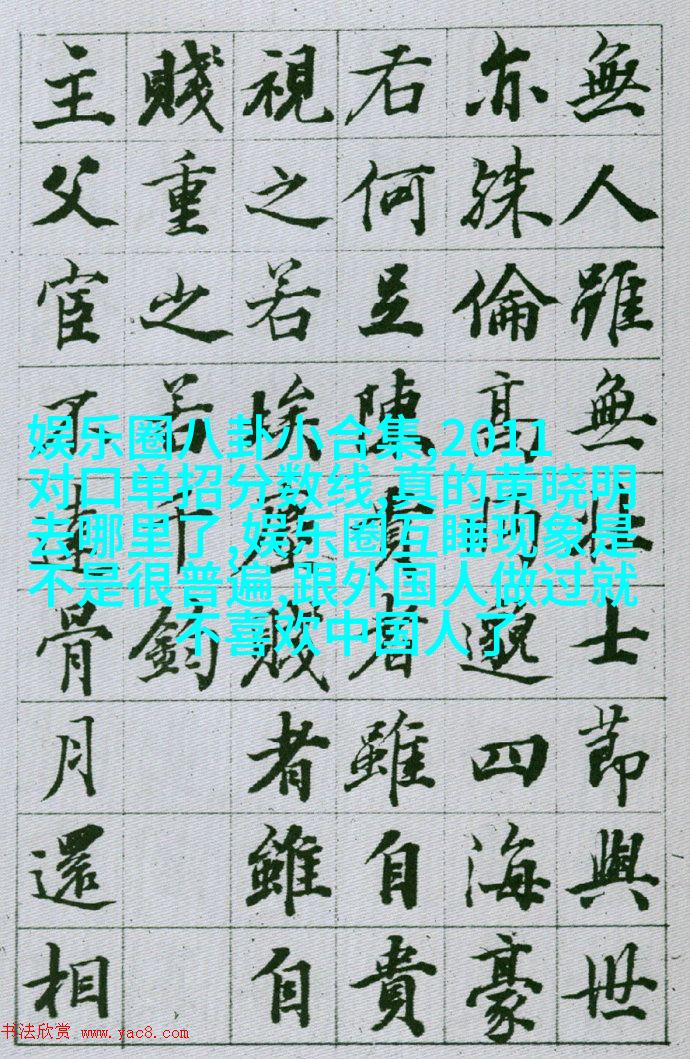 無人雖無壯士節與世
亦殊倫高眄邈四海豪
右何足陳貴者雖自貴
視之若埃塵賤者雖自
賤重之若千鈞
主父宦不達骨月還相
娱乐圈八卦小合集,2011
对口单招分数线,真的黄晓明
去哪里了,娱乐圈互睡现象是
不是很普遍,跟外国人做过就
不喜欢中国人了
书法欣赏 www.yac8.com